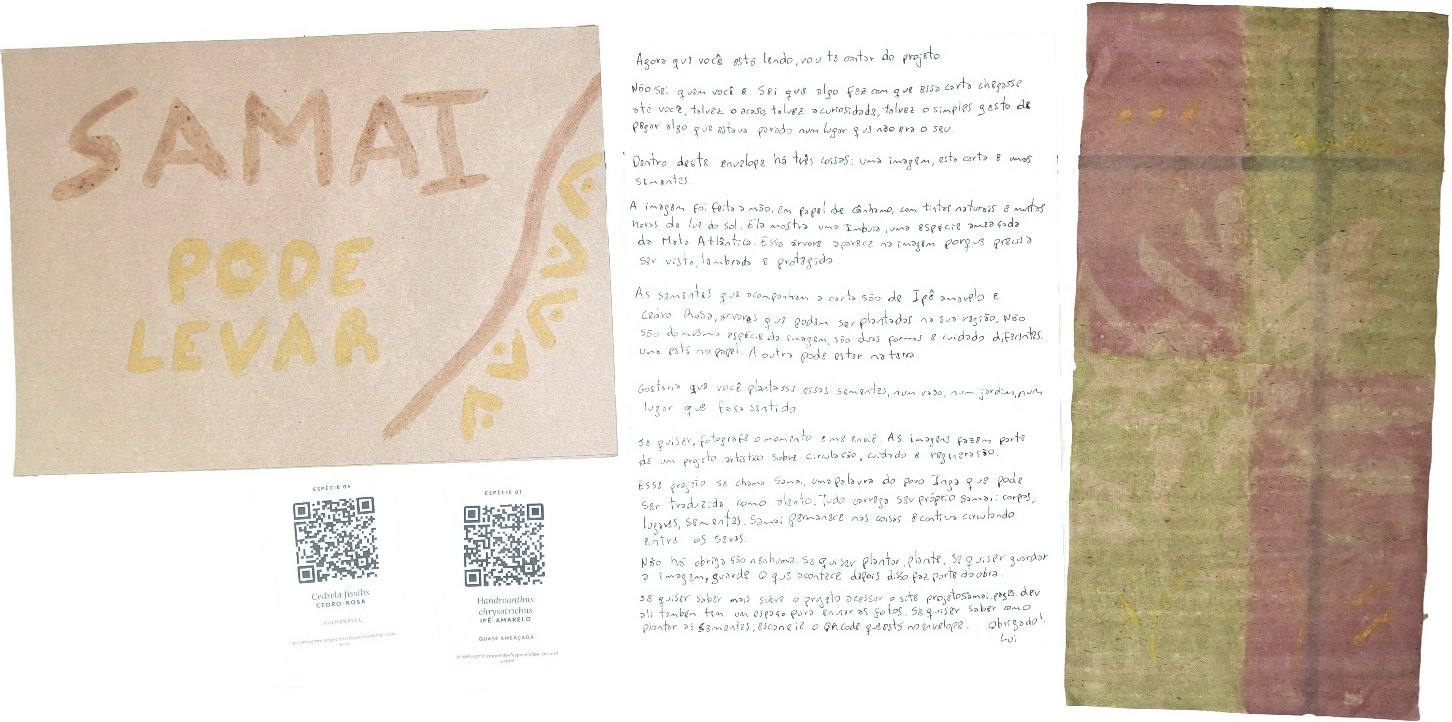 SAMAI
PODE
LEVAR
Agora que você está lendo, vou te contar do projeto
Não sei quem você é. Sei que algo fez com que essa carta chegasse
até você, talvez o acaso, talvez a curiosidade, talvez o simples gesto de
pegar algo que estava parado num lugar que não era o seu.
Dentro deste envelope há três coisas: uma imagem, esta carta e umas
sementes.
A imagem foi feita a mão, em papel de cânhamo, com tintas naturais e muitas
horas de luz do sol. Ela mostra uma Imbuia, uma espécie ameaçada
da Mata Atlântica. Essa árvore aparece na imagem porque precisa
ser vista, lembrada e protegida.
As sementes que acompanham a carta são de Ipê amarelo e
Cedro Rosa, árvores que podem ser plantadas na sua região. Não
são da mesma espécie da imagem, são duas formas de cuidado diferentes.
Uma está no papel. A outra pode estar na terra.
Gostaria que você plantasse essas sementes, num vaso, num jardim, num
lugar que faça sentido
Se quiser, fotografe o momento e me envie. As imagens fazem parte
de um projeto artístico sobre circulação, cuidado e regeneração.
Esse projeto se chama Samai, uma palavra do povo Inga que pode
ser traduzida como alento. Tudo carrega seu próprio samai: corpos,
lugares, sementes. Samai permanece nas coisas e continua circulando
entre os seres.
Não há obrigação nenhuma. Se quiser plantar, plante. Se quiser guardar
a imagem, guarde. O que acontece depois disso faz parte da obra.
Se quiser saber mais sobre o projeto acesse o site projetosamai.pages.dev
ali também tem um espaço para enviar as fotos. Se quiser saber como
plantar as sementes, escaneie o QR code que está no envelope. Obrigado!
Lui
ESPÉCIE 04
Cedrela fissilis
CEDRO-ROSA
VULNERÁVEL
ESPÉCIE 01
Handroanthus
chrysotrichus
IPÊ-AMARELO
QUASE AMEAÇADA